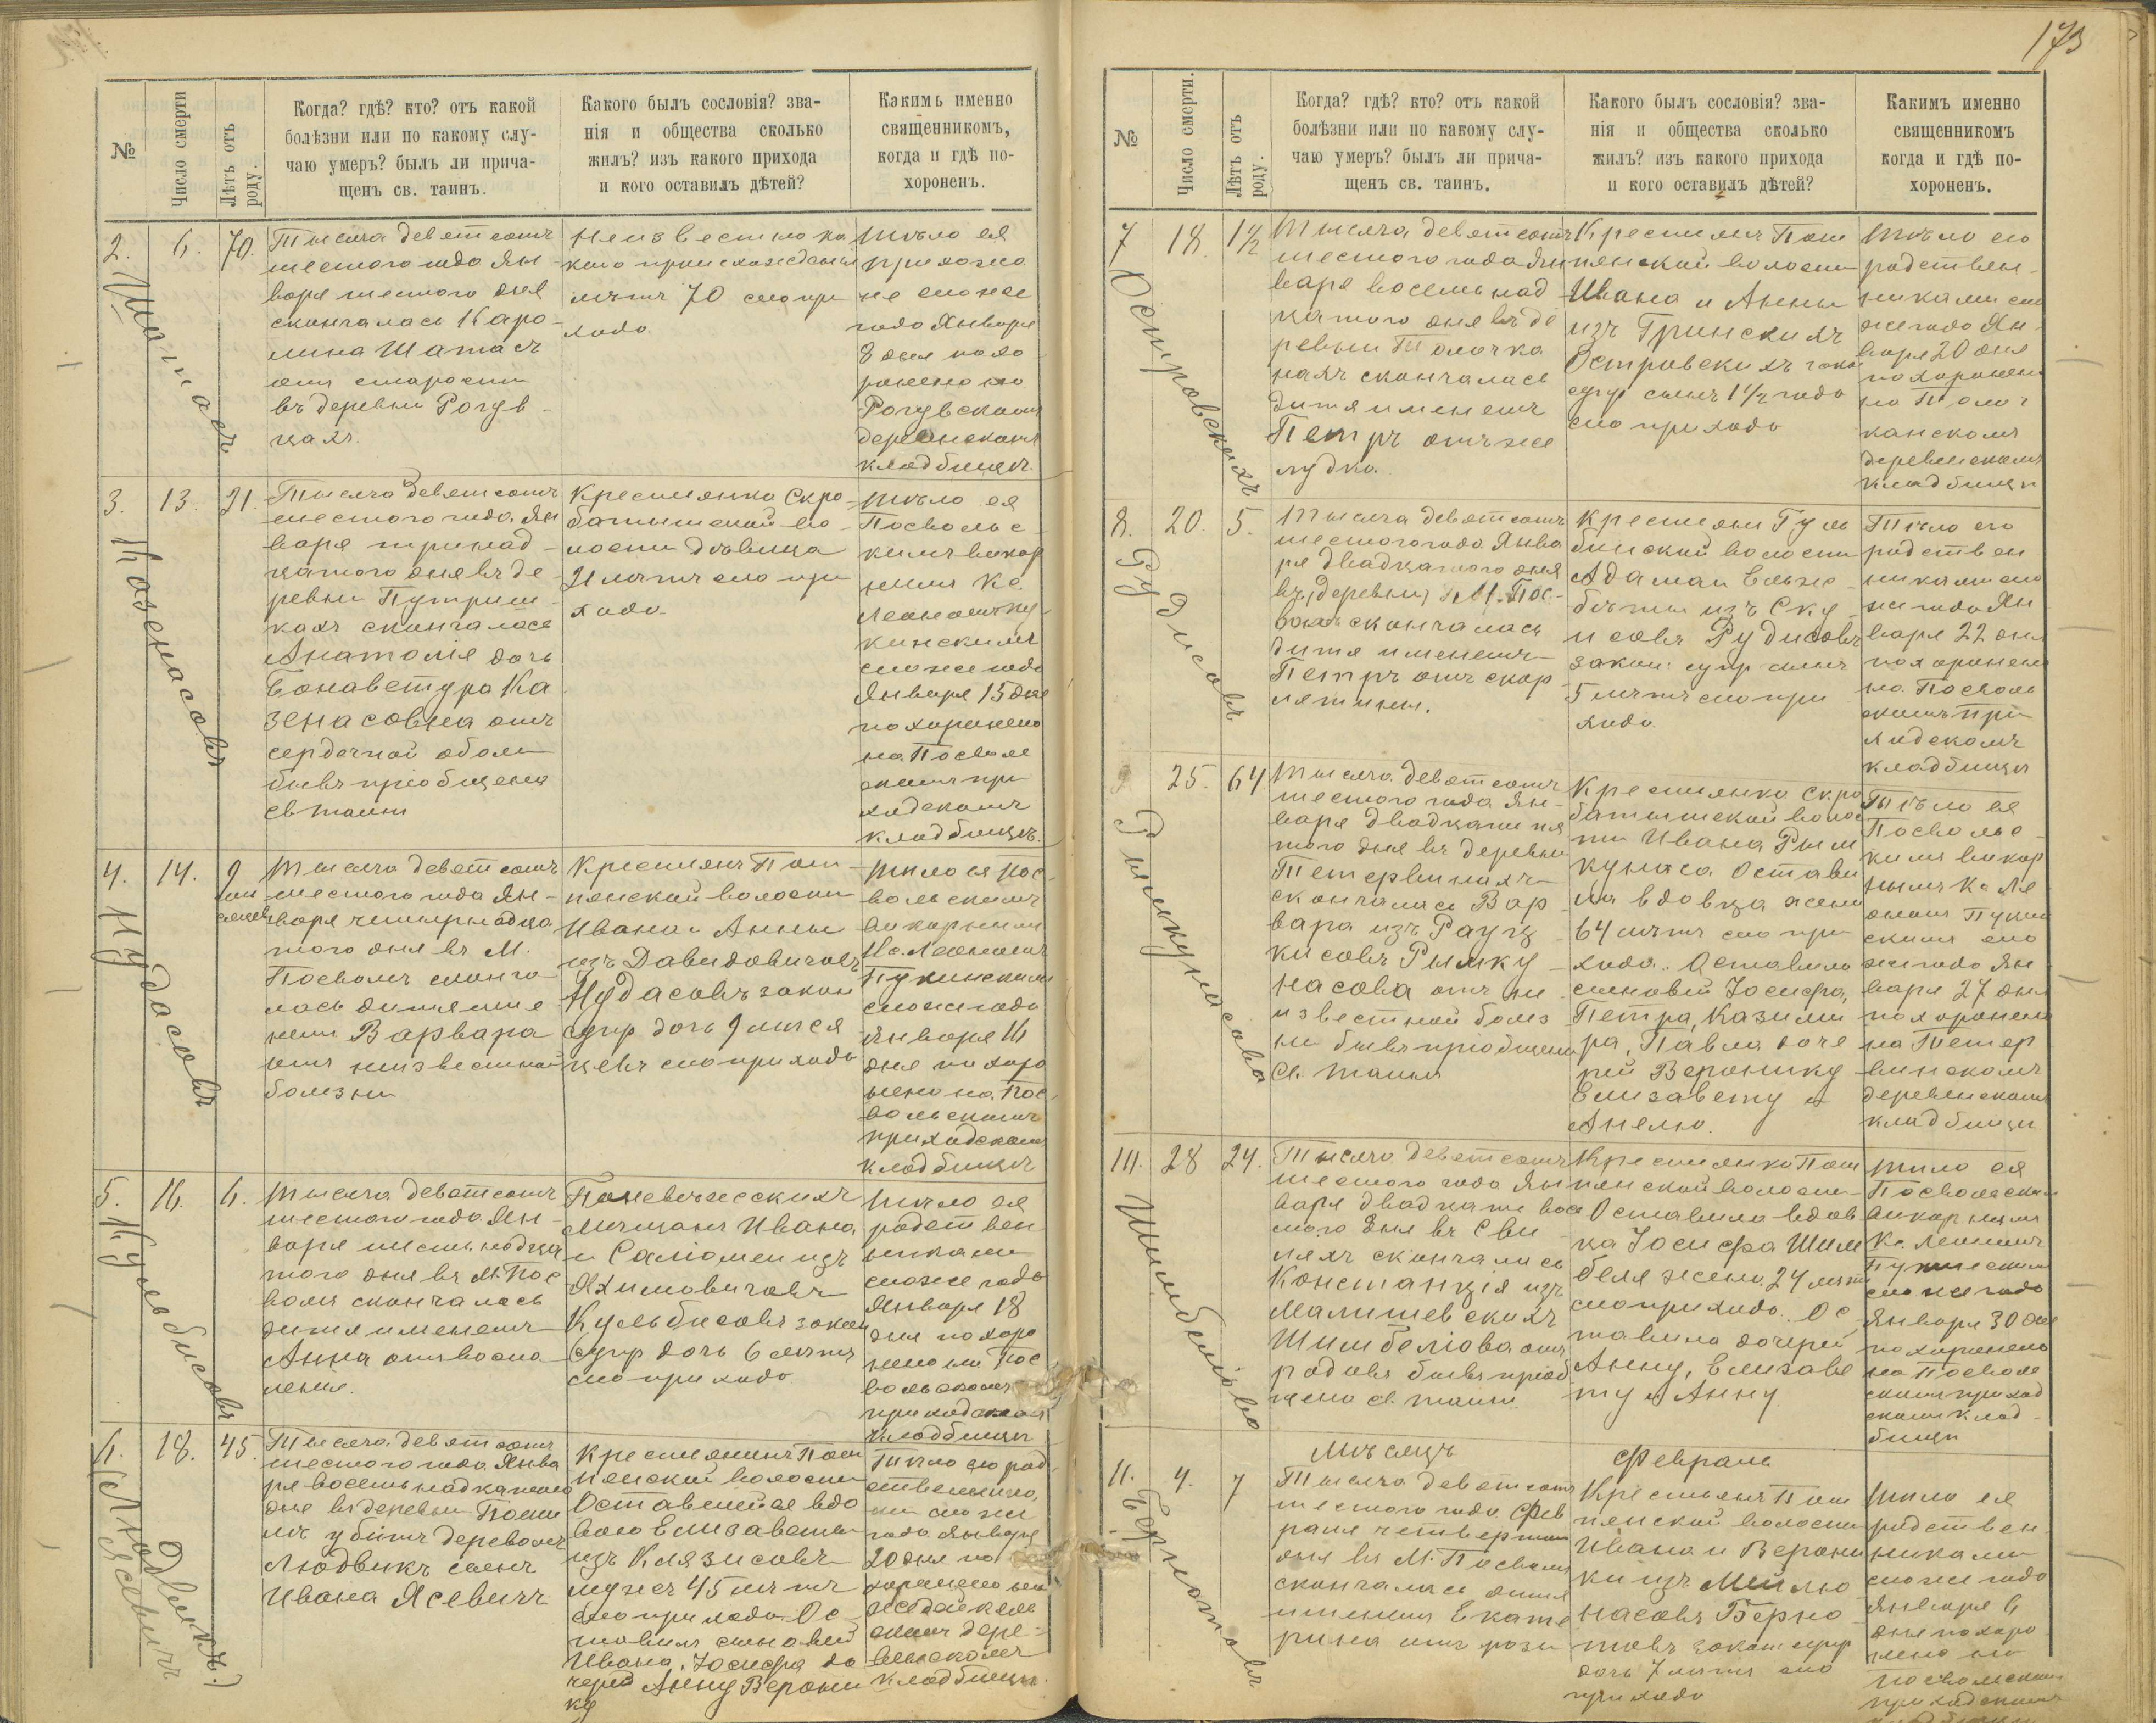 173
№
Число смерти
Лѣтъ отъ роду.
Когда? гдѣ? кто? отъ какой
болѣзни или по какому слу-
чаю умеръ? былъ ли прича-
щенъ св. таинъ.
Какого былъ сословія? зва-
нія и общества сколько
жилъ? изъ какого прихода
и кого оставилъ дѣтей?
Какимъ именно
священникомъ,
когда и гдѣ по-
хороненъ.
2.
Шатасъ
6.
70.
Тысяча девятсотъ
шестого года Ян-
варя шестого дня
скончалась Каро-
лина Шатасъ
отъ старости
въ деревни Рогув-
цахъ.
Неизвестно ка
кого происхожденья
лѣтъ 70 сего при
хода
Тѣло ея
прихожа
не сего же
года Января
8 дня похо
ронено на
Рогувскомъ
деревнскомъ
кладбищѣ.
3.
Казенасовъ
13.
21.
Тысяча девятсотъ
шестого года Ян
варя тринад-
цатого дня въ де
ревни Путриш-
кахъ скончалась
Анатолія дочь
Бонавентура Ка
зенасовна отъ
сердечной
бывъ пріобщена
св таинъ
Крестьянка Скро-
батишской во-
лости дѣвица
21 лѣтъ сего при
хода
Тѣло ея
Посвольс
кимъ викар
нымъ Кс.
Леономъ Пу-
кинскимъ
сего же года
Января 15 дня
похоронено
на Посволь
скомъ при
ходскомъ
кладбищѣ.
4.
Нудасовъ
14.
9
мѣ
сяцевъ
Тысяча девятсотъ
шестого года Ян-
варя четырнадца
того дня въ М.
Посволъ сконча
лась дитя име
немъ Варвара
отъ неизвестной
болезни
Крестьянъ Пом-
пянской волости
Ивана и Анны
изъ Давидовичовъ
Нудасовъ закон
супр дочь 9 мѣся
цевъ сего прихода
Тѣло ея Пос-
вольскимъ
викарнымъ
Кс. Леономъ
Пукинскимъ
сего же года
Января 16
дня похоро
нено на Пос
вольскомъ
приходскомъ
кладбищѣ
5.
Кульбисовъ
16.
6.
Тысяча девятсотъ
шестого года Ян-
варя шестьнадца
того дня въ М. Пос
волъ скончалась
дитя именемъ
Анна отъ воспа
ленія.
Паневѣжскихъ
Мѣщанъ Ивана
и Саломеи изъ
Яхимовичовъ
Кульбисовъ закон
супр дочь 6 лѣтъ
сего прихода
Тѣло ея
родствен
никами
сего же года
Января 18
дня похоро
нено на Пос
вольскомъ
приходскомъ
кладбищѣ
6.
Людвикъ Ясевичъ
18.
45.
Тысяча девятсотъ
шестого года Янва
ря восемьнадцатого
дня въ деревни
убитъ деревомъ
Людвикъ сынъ
Ивана Ясевичъ
Крестьянинъ Пом
пянской волости
Оставшейся вдо
вою Елизаветы
изъ Клязисовъ
мужъ 45 лѣтъ
сего прихода. Ос
тавилъ сыновей
Ивана, Іосифа до
черей Анну Верони
ку
Тѣло его род
ственника
ми сего же
года Января
20 дня по
хоронено на
скомъ дере-
венскомъ
кладбищѣ.
№
Число смерти.
Лѣтъ отъ роду.
Когда? гдѣ? кто? отъ какой
болѣзни или по какому слу-
чаю умеръ? былъ ли прича-
щенъ св. таинъ.
Какого былъ сословія? зва-
нія и общества сколько
жилъ? изъ какого прихода
и кого оставилъ дѣтей?
Какимъ именно
священникомъ
когда и гдѣ по-
хороненъ.
7
Островскихъ
18.
1½
Тысяча девятсотъ
шестого года Ян
варя восемьнад
цатого дня въ де
ревни Толочка
нахъ скончалась
дитя именемъ
Петръ отъ же
лудка.
Крестьянъ Пом
пянской волости
Ивана и Анны
изъ Гринскихъ
Островскихъ зако
супр сынъ 1½ года
сего прихода
Тѣло его
родствен-
никами сего
же года Ян-
варя 20 дня
похоронено
на Толоч
канскомъ
деревенскомъ
кладбищѣ
8.
Рудисовъ
20.
5.
Тысяча девятсотъ
шестого года Янва
ря двадцатого дня
въ (деревни) М. Пос-
волъ скончалась
дитя именемъ
Петръ отъ скар
лятины.
Крестьяни Гуль
бинской волости
Адама и Ельжо-
бѣты изъ Ску
исовъ Рудисовъ
закон: супр сынъ
5 лѣтъ сего при
хода.
Тѣло его
родствен
никами сего
же года Ян
варя 22 дня
похоронено
на Посволь
скомъ при
ходскомъ
кладбищѣ
9
Римкунасова
25.
64
Тысяча девятсотъ
шестого года Ян-
варя двадцати пя
того дня въ деревни
Тетервинахъ
скончалась Вар
вара изъ Рауц
кисовъ Рымку-
насова отъ не
известной болез
ни бывъ пріобщена
Св. таинъ
Крестьянка Скро
батишской волос
ти Ивана Рым
кунаса Остави
ла вдовца жена
64 лѣтъ сего при
хода. Оставила
сыновей Іосифа,
Петра, Казими
ра, Павла доче
рей Веронику
Елизавету и
Анелю.
Тѣло ея
Посвольс-
кимъ викар
нымъ Кс Ле
ономъ Пукин
скимъ сего
же года Ян
варя 27 дня
похоронено
на Тетер
винскомъ
деревенскомъ
кладбищѣ
10.
Шимбеліова
28
24.
Тысяча девятсотъ
шестого года Ян
варя двадцати вось
мого дня въ Сви-
ляхъ скончалась
Констанція изъ
Малишевскихъ
Шимбеліова отъ
родовъ бывъ пріоб
щена св. таинъ
Крестьянка Пом
пянской волости
Оставила вдов
ца Іосифа Шим
беля жена 24 лѣтъ
сего прихода. Ос
тавила дочерей
Анну, Елизаве
ту и Анну
Тѣло ея
Посвольским
викарнымъ
Кс. Леономъ
Пукинскимъ
сего же года
Января 30 дня
похоронено
на Посволь
скомъ приход
скомъ клад-
бищѣ
Мѣсяцъ
Февраль
11.
Бернотовъ
4.
7
Тысяча девятсотъ
шестого года Фев
раля четвертого
дня въ М. Посволъ
скончалась дитя
именемъ Екате
рина отъ рози
Крестьянъ Пом
пянской волости
Ивана и Верони
ки изъ Мейлю
насовъ Берно
товъ закон супр
дочь 7 лѣтъ сего
прихода
Тѣло ея
родствен
никами
сего же года
Января 6
дня похоро
нено на
Посвольскомъ
приходскомъ
кладбищѣ